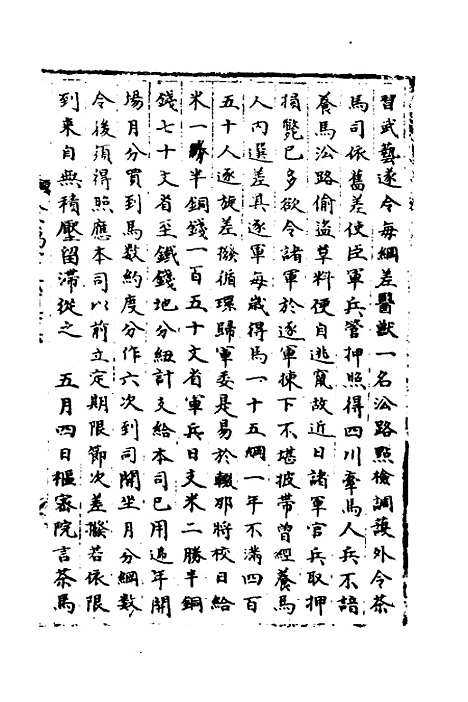 習武藝遂令每綱差醫獸一名沿路點檢調護外令茶
馬司依舊差使臣軍兵管押照得四川牽馬人兵不諳
養馬沿路偷盜草料便自逃竄故近日諸軍官兵取押
損斃已多欲令諸軍於逐軍揀下不堪披帶曾經養馬
人內選差具逐軍每歲得馬一十五綱一年不滿四百
五十人逐旋差撥循環歸軍委是易於輟那將校日給
米一勝半銅錢一百五十文省軍兵日支米二勝半銅
錢七十文省至鐵錢地分紐計支給本司已用逐年開
場月分買到馬數約度分作六次到司開坐月分綱數
令後須得照應本司以前立定期限節次差撥若依限
到來自無積壓留滯從之　五月四日樞密院言茶馬